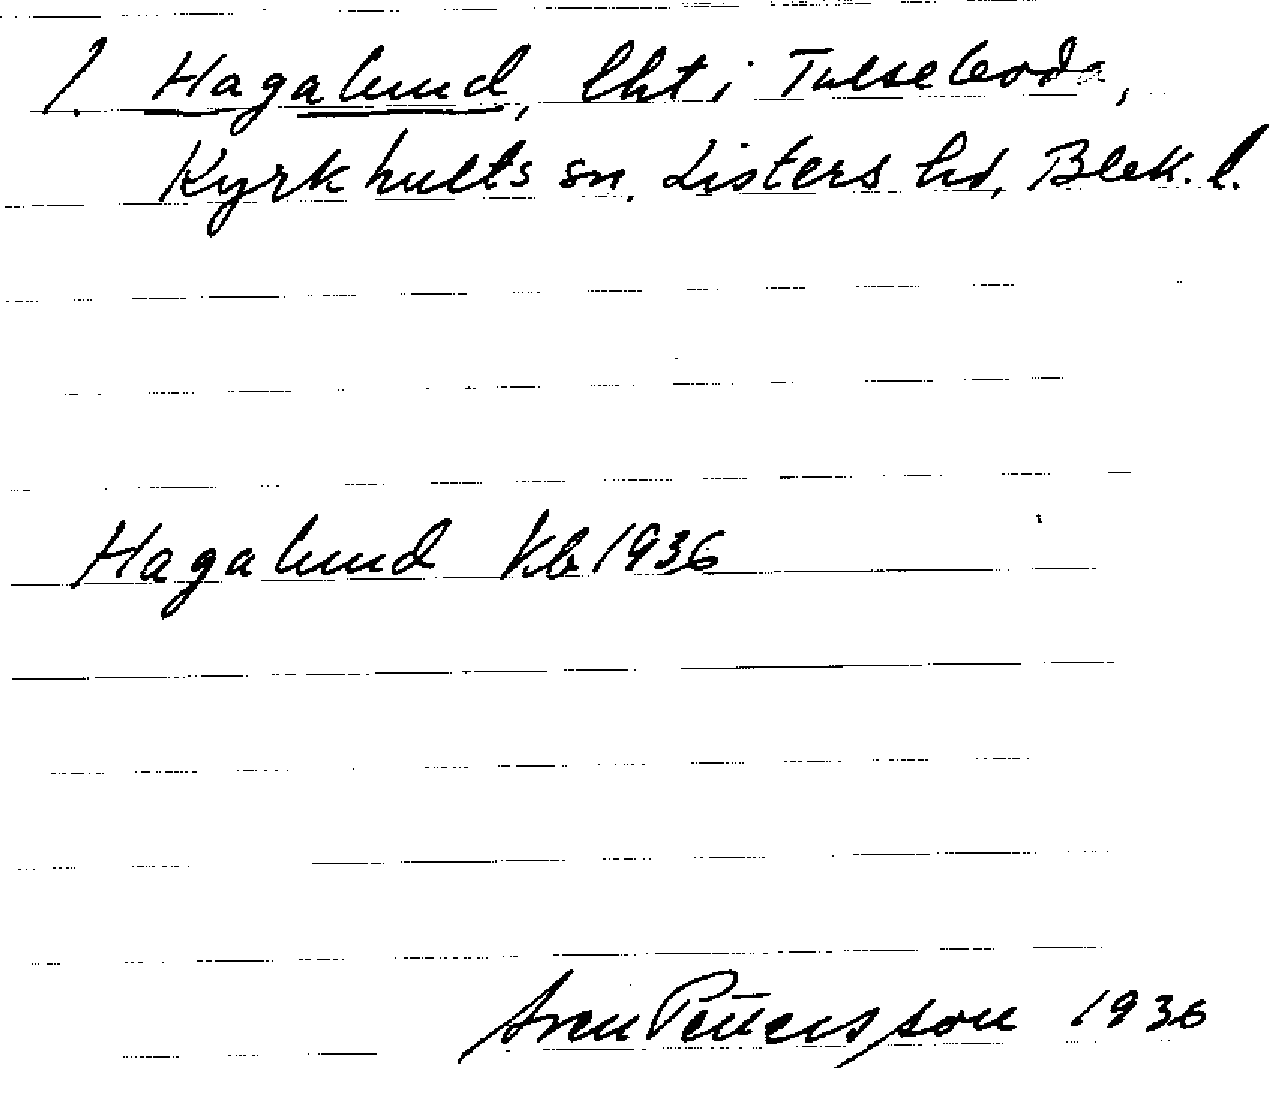 1. Hagalund, lht i Tulseboda,
Kyrkhults sn. Listers hd, Blek. l.
Hagalund Kb 1936
Sven Pettersson 1936